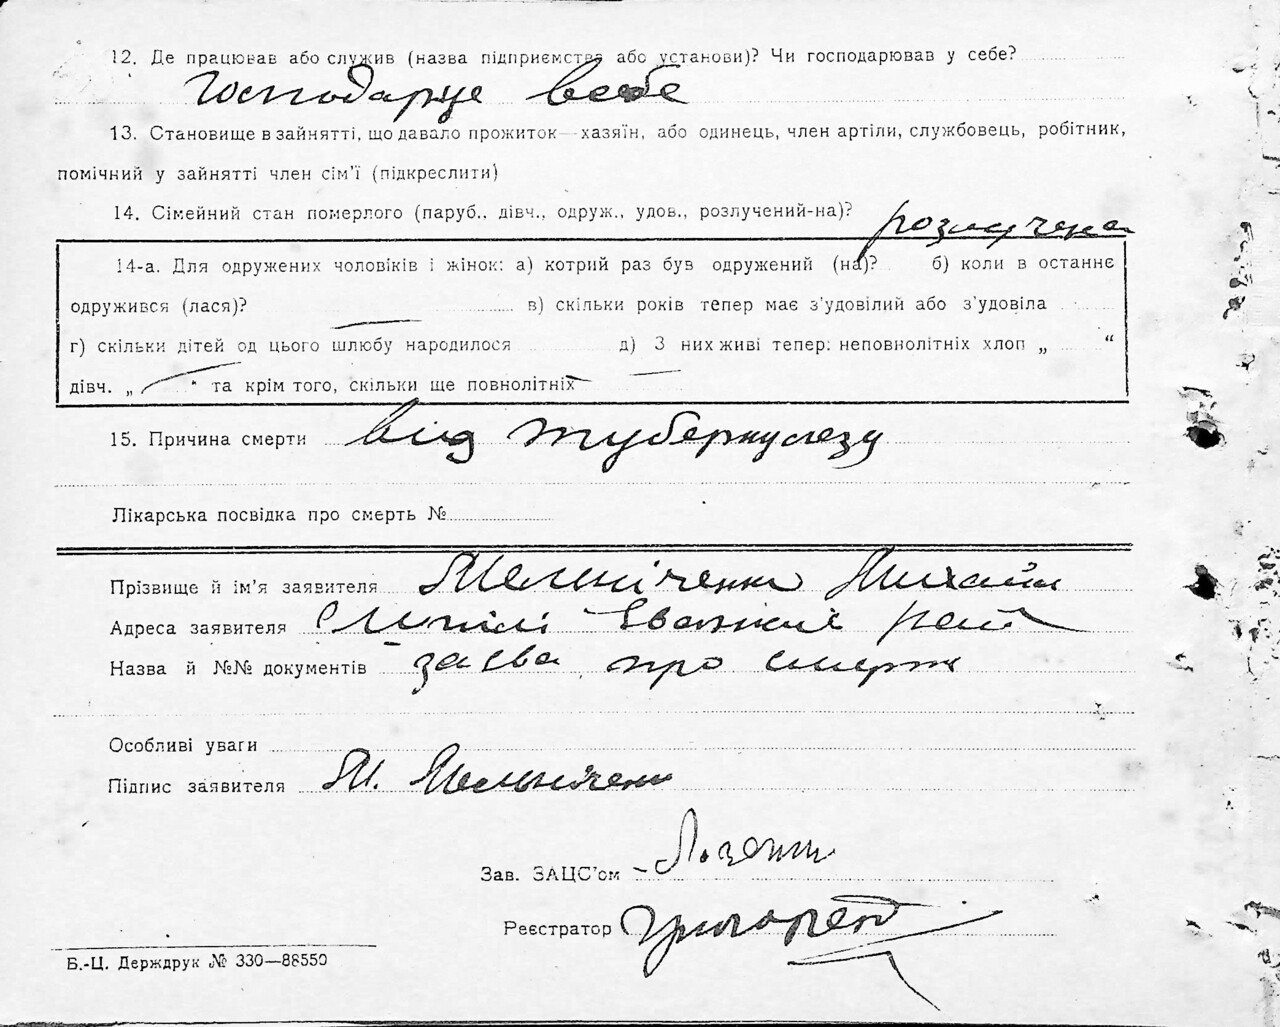 12. Де працював або служив (назва підприємства або установи)? Чи господарював у себе?
Господарує в себе
13. Становище в зайнятті, що давало прожиток—хазяїн, або одинець, член артіли, службовець, робітник,
помічний у зайнятті член сім'ї (підкреслити)
14. Сімейний стан померлого (паруб., дівч., одруж., удов., розлучений-на)? розлучена
14-а. Для одружених чоловіків і жінок: а) котрий раз був одружений (на)? б) коли в останнє
одружився (лася)? в) скільки років тепер має з'удовілий або з'удовіла
г) скільки дітей од цього шлюбу народилося д) З них живі тепер: неповнолітніх хлоп „ “
дівч. „ “ та крім того, скільки ще повнолітніх
15. Причина смерти від туберкулезу
Лікарська посвідка про смерть №
Прізвище й ім'я заявителя Мельніченко Михайло
Адреса заявителя
Назва й №№ документів заява про смерть
Особливі уваги
Підпис заявителя М. Мельніченко
Зав. ЗАЦС'ом
Реєстратор
Б.-Ц. Держдрук № 330—88550